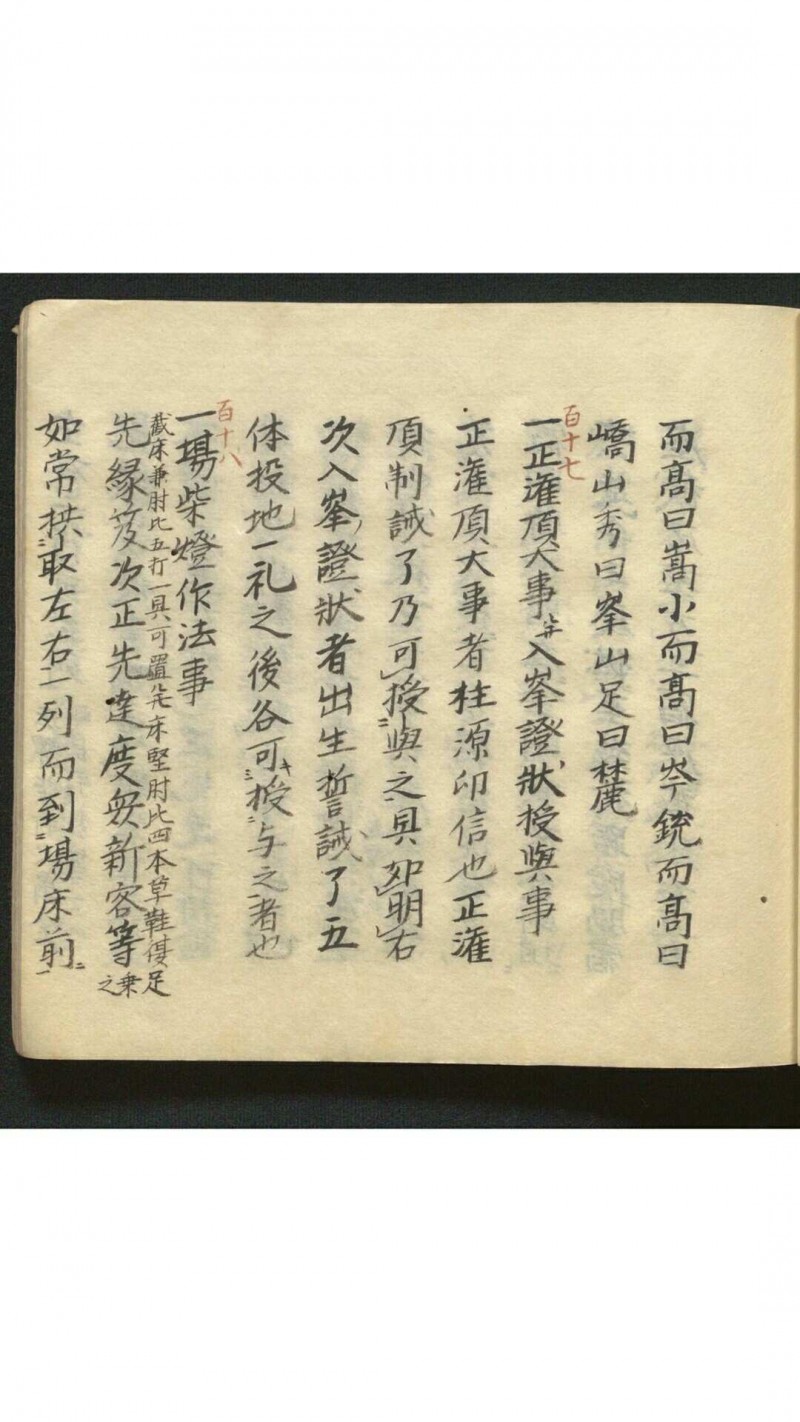 而髙曰嵩小而髙曰岑銳而髙曰
嶠山秀曰峯山足曰麓
百十七
一正灌頂大事并入峯證狀授與事
正灌頂大事者柱源印信也正灌
頂制誡了乃可授與之具如明右
次入峯證狀者出生誓誡了五
体投地一礼之後各可授与之者也
百十八
一場柴燈作法事
蔵床兼肘比五打一具可置先床堅肘比四本草鞋
足
先縁笈次正先達度衆新客等
乗之
如常拱取左右一列而到場床前